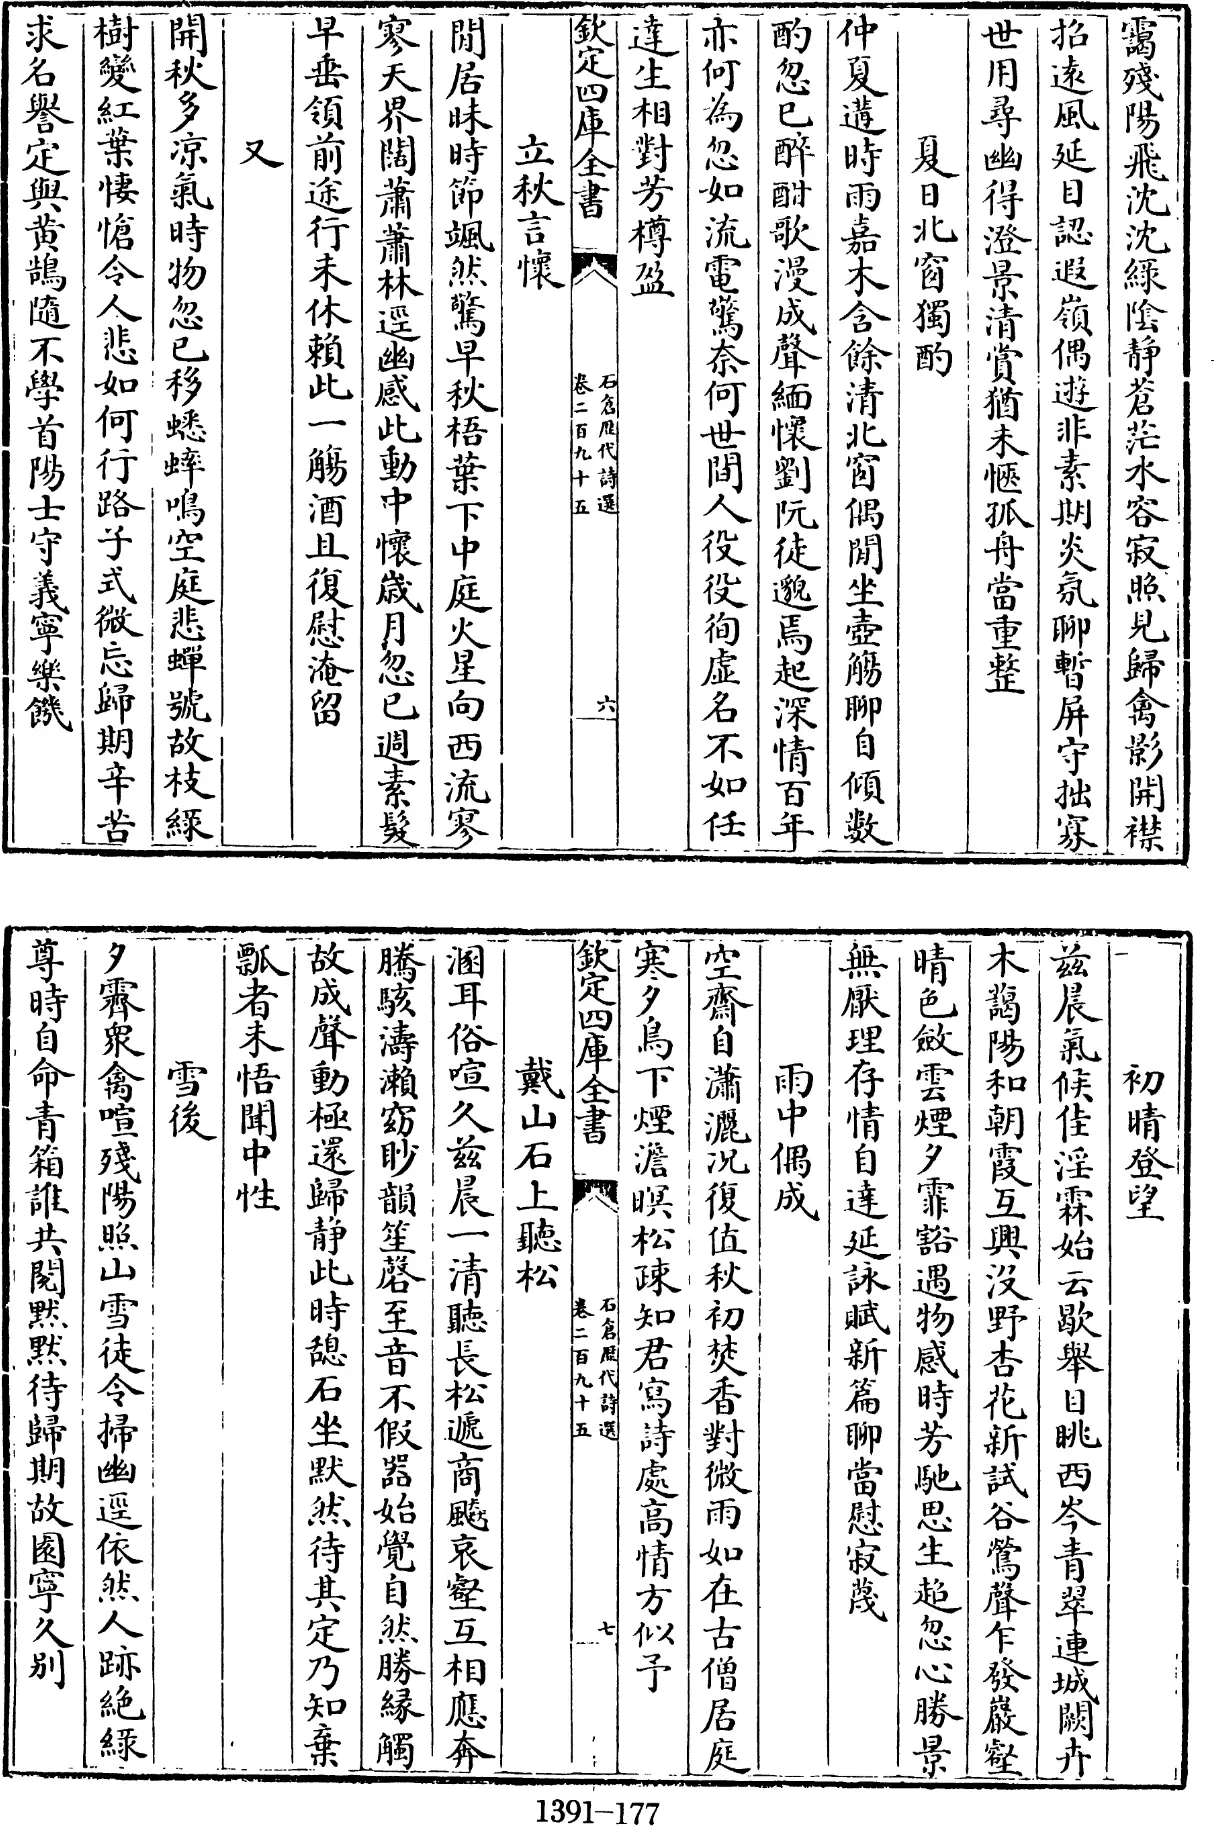 靄殘陽飛沈沈綠陰靜蒼茫水容寂照見歸禽影開襟
招遠風延目認遐嶺偶遊非素期炎氛聊暫屏守拙寡
世用尋幽得澄景清賞猶未愜孤舟當重整
夏日北窗獨酌
仲夏遘時雨嘉木含餘清北窗偶閒坐壺觴聊自傾數
酌忽已醉酣歌漫成聲緬懷劉阮徒邈焉起深情百年
亦何為忽如流電驚奈何世間人役役徇虛名不如任
達生相對芳樽盈
欽定四庫全書
石倉歷代詩選
卷二百九十五
六
立秋言懷
閒居昧時節颯然驚早秋梧葉下中庭火星向西流寥
寥天界闊蕭蕭林逕幽感此動中懷歲月忽已週素髮
早垂領前途行未休賴此一觴酒且復慰淹留
又
開秋多凉氣時物忽已移蟋蟀鳴空庭悲蟬號故枝綠
樹變紅葉悽愴令人悲如何行路子式微忘歸期辛苦
求名譽定與黃鵠隨不學首陽士守義寧樂饑
初晴登望
兹晨氣候佳淫霖始云歇舉目眺西岑青翠連城闕卉
木藹陽和朝霞互興沒野杏花新試谷鶯聲乍發巖壑
晴色斂雲煙夕霏豁遇物感時芳馳思生超忽心勝景
無厭理存情自達延詠賦新篇聊當慰寂蔑
雨中偶成
空齋自瀟灑况復值秋初焚香對微雨如在古僧居庭
寒夕鳥下煙澹暝松疎知君寫詩處高情方似予
欽定四庫全書
石倉歷代詩選
卷二百九十五
七
戴山石上聽松
溷耳俗喧久兹晨一清聽長松遞商飈哀壑互相應奔
騰駭濤瀨窈眇韻笙磬至音不假器始覺自然勝緣觸
故成聲動極還歸靜此時憩石坐默然待其定乃知棄
瓢者未悟聞中性
雪後
夕霽衆禽喧殘陽照山雪徒令掃幽逕依然人跡絶綠
尊時自命青箱誰共閱默默待歸期故園寧久別
1391-177